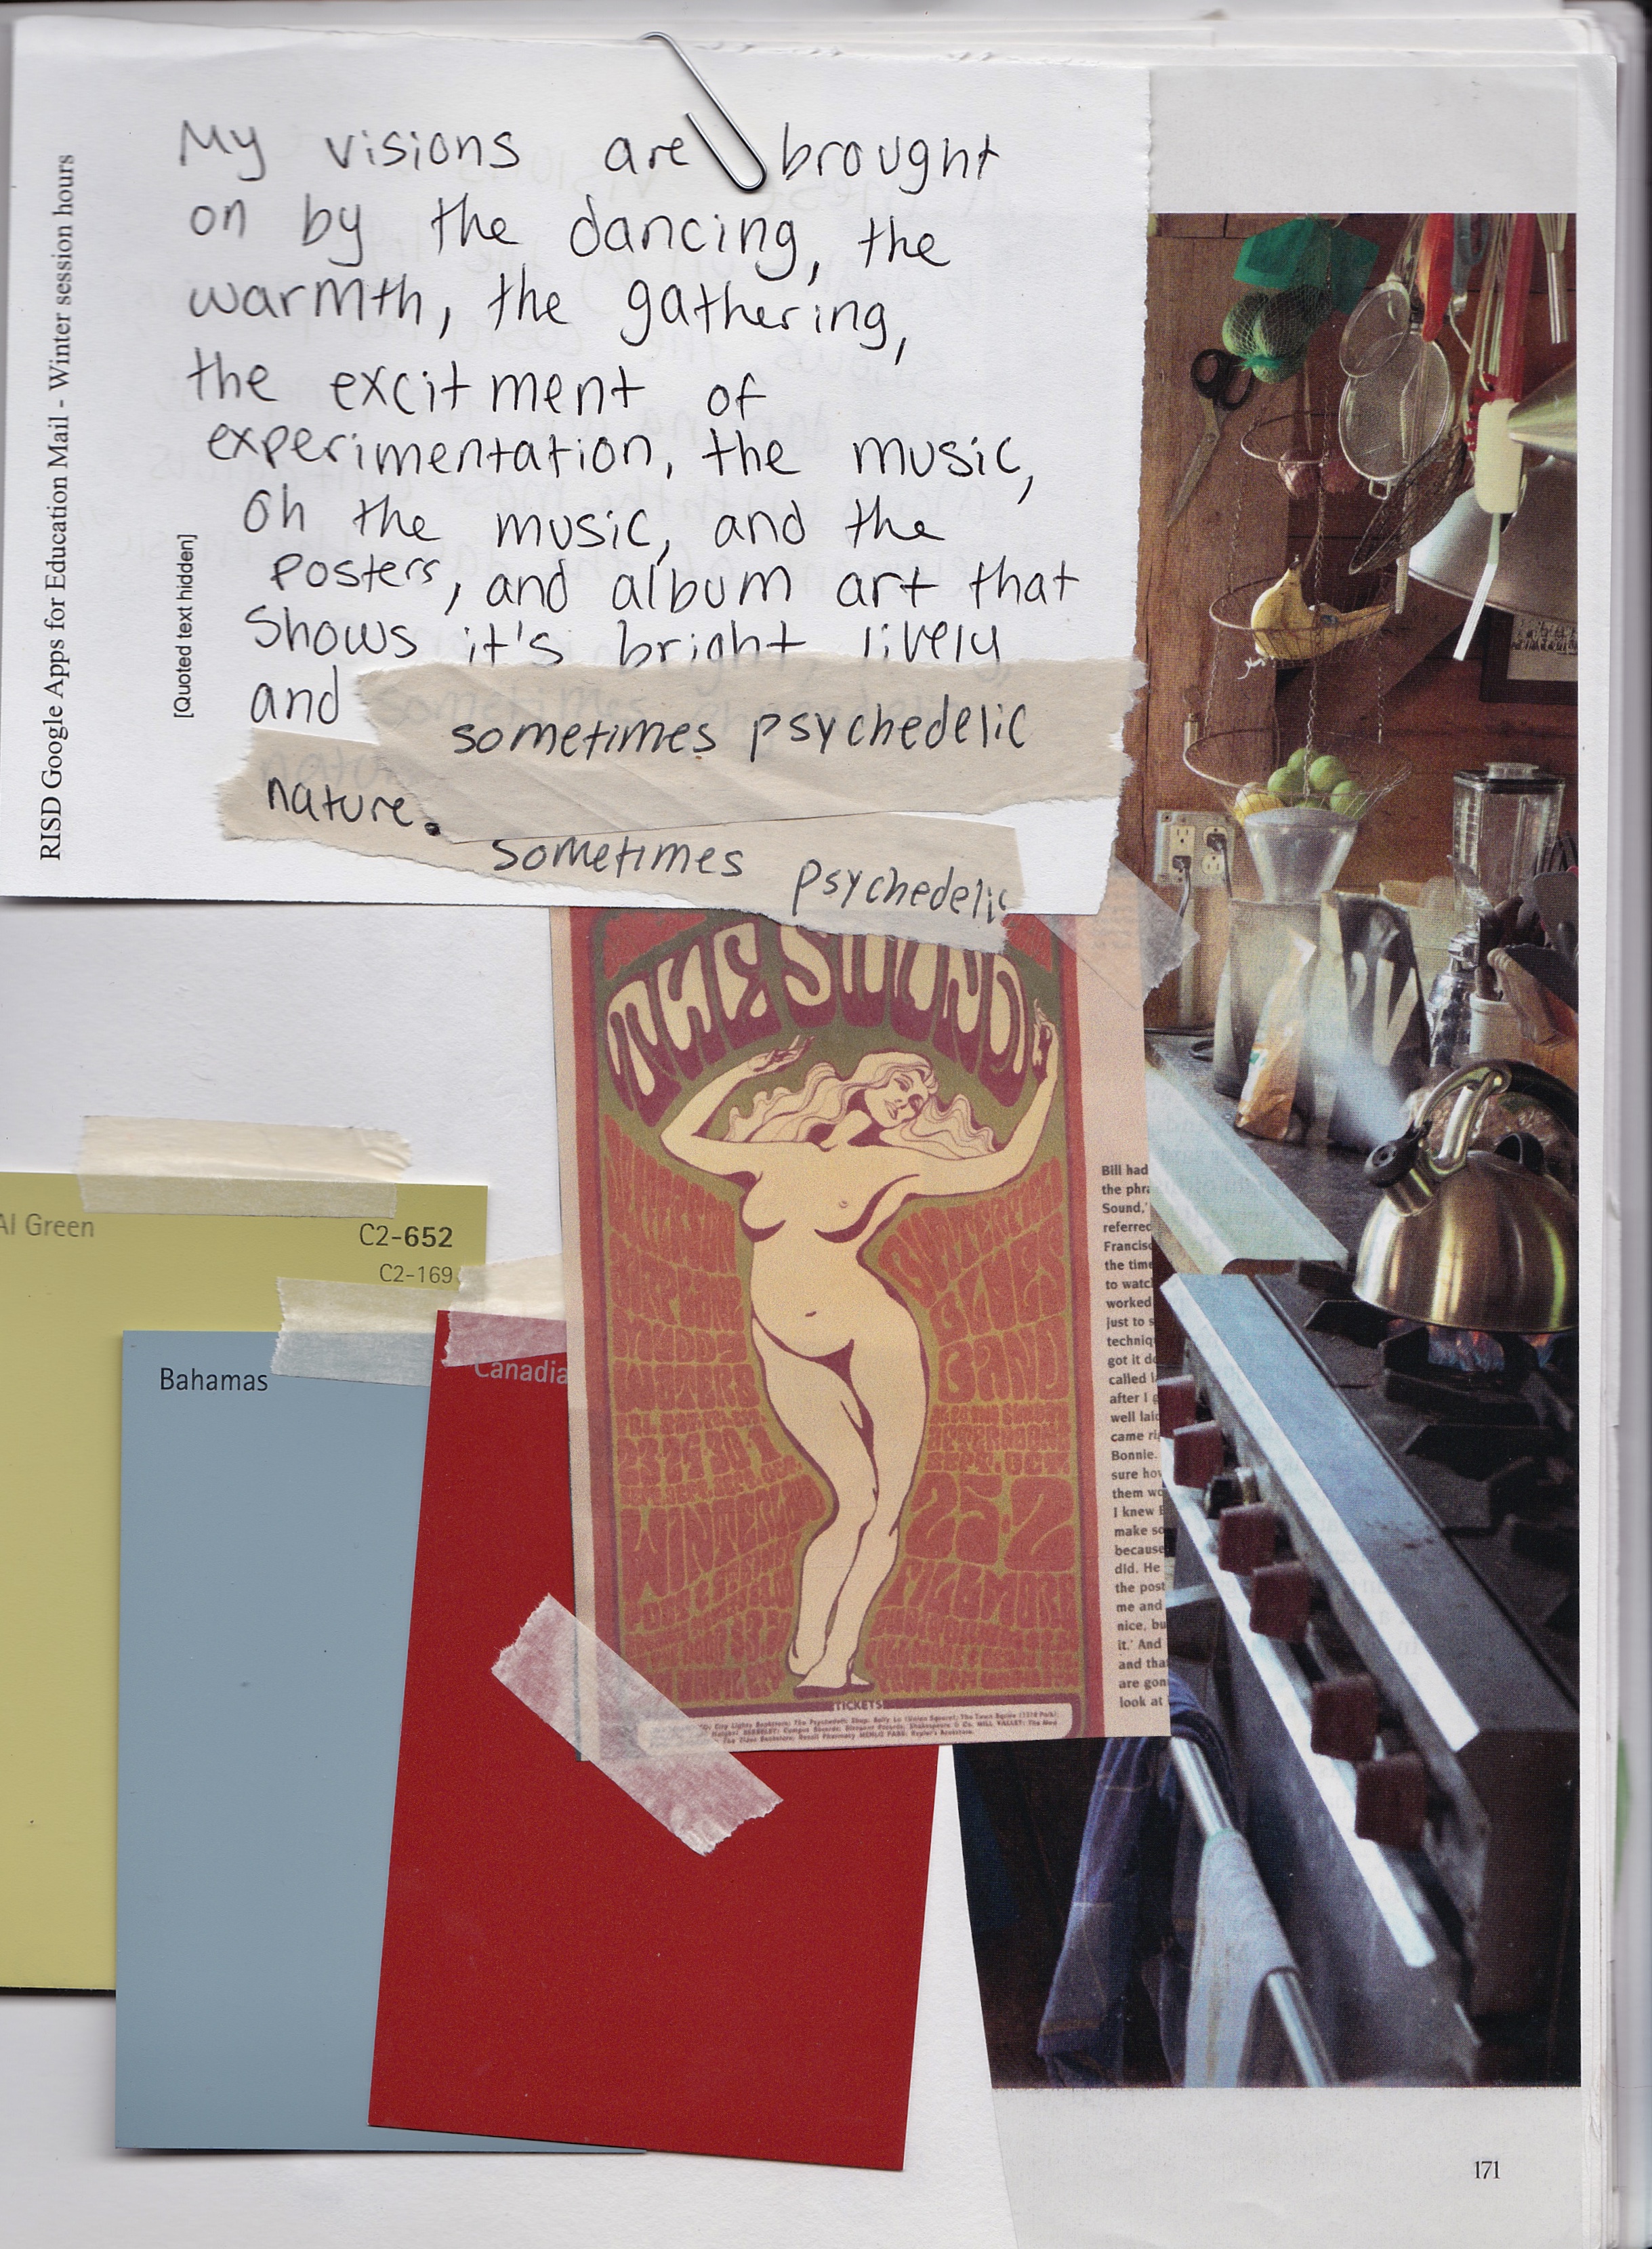 RISD Google Apps for Education Mail - Winter session hours
[Quoted text hidden]
My visions are brought
on by the dancing, the
warmth, the gathering,
the excitment of
experimentation, the music,
oh the music, and the
posters, and album art that
shows it's bright, lively,
and sometimes psychedelic
nature.
sometimes psychedelic
THE SOUND
JEFFERSON
AIRPLANE
MUDDY
WATERS
BUTTERFIELD
BLUES
BAND
23·24·30·1
WINTERLAND
AFTERNOON
SEPT. OCT.
25-2
FILLMORE
TICKETS
Bill had
the phra
Sound,'
referred
Francisc
the time
to watc
worked
just to s
techniq
got it d
called l
after I g
well laid
came ri
Bonnie.
sure how
them wo
I knew
make so
because
did. He
the post
me and
nice, bu
it.' And
and tha
are gon
look at
Al Green
C2-652
C2-169
Bahamas
Canadia
171